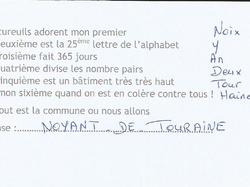 tureuils adorent mon premier Noix
euxième est la 25ème lettre de l'alphabet Y
roisième fait 365 jours An
uatrième divise les nombres pairs Deux
inquième est un bâtiment très très haut Tour
mon sixième quand on est en colère contre tous ! Haine
out est la commune ou nous allons
se : NOYANT DE TOURAINE